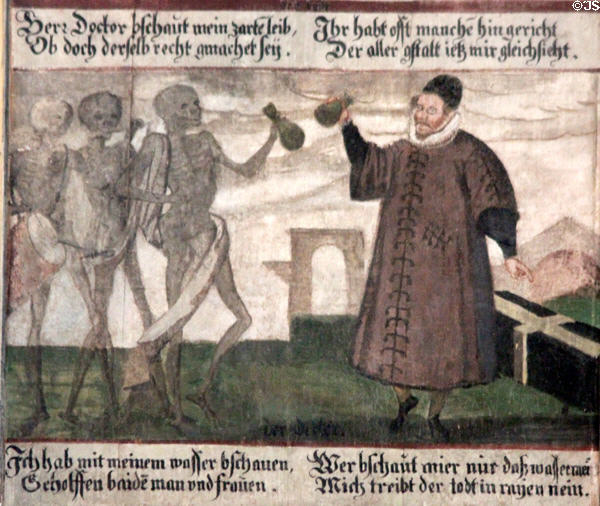 Herr Doctor bschaut mein zarte leib,
Ob doch derselb recht gmachet seÿ.
Ihr habt offt manchē hin gericht
Der aller gstalt ietz mir gleichsicht.
der Doctor.
Ich hab mit meinem wasser bschauen,
Geholffen baidē man vnd frauen.
Wer bschaut mier nur daß wasser mei
Mich treibt der todt in rayen nein.
© JSH